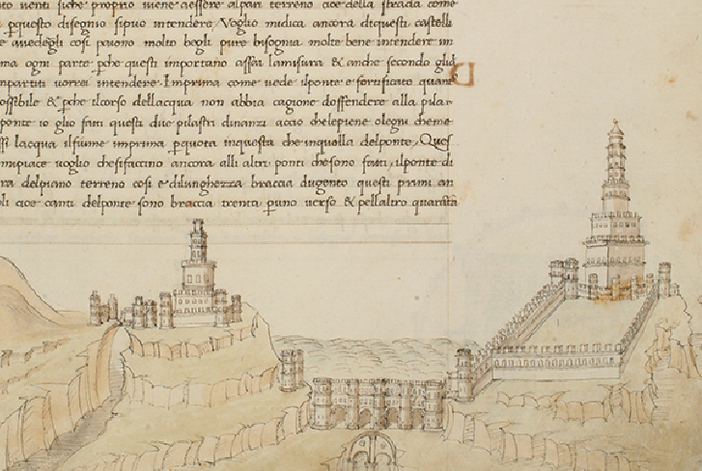 to uenti siche proprio uiene aessere alpari terreno cioe della strada come
pquesto disegno sipuo intendere, Voglio midica ancora diquesti castelli
e auedegli cosi paiono molto begli pure bisognia molto bene intendere in
ma ogni parte pche questi importano assai lamisura & anche secondo glid
mparturi uorrei intendere. Imprima come uede ilponte e fortificato quant
ossibile & pche ilcorso dellacqua non abbia cagione doffendere alla pilar
ponte io glio fatti questi due pilastri dinanzi acio chelepiene olegni cheme
si lacqua ilfiume imprima pquota inquesta che inquella delponte, Ques
mipiace uoglio chesifaccino ancora alli altri ponti chesono fatti, ilponte di
ra delpiano terreno cosi e dilunghezza braccia dugento questi primi an
li cioe canti delponte sono braccia trenta puno uerso & pellaltro quaranta
D